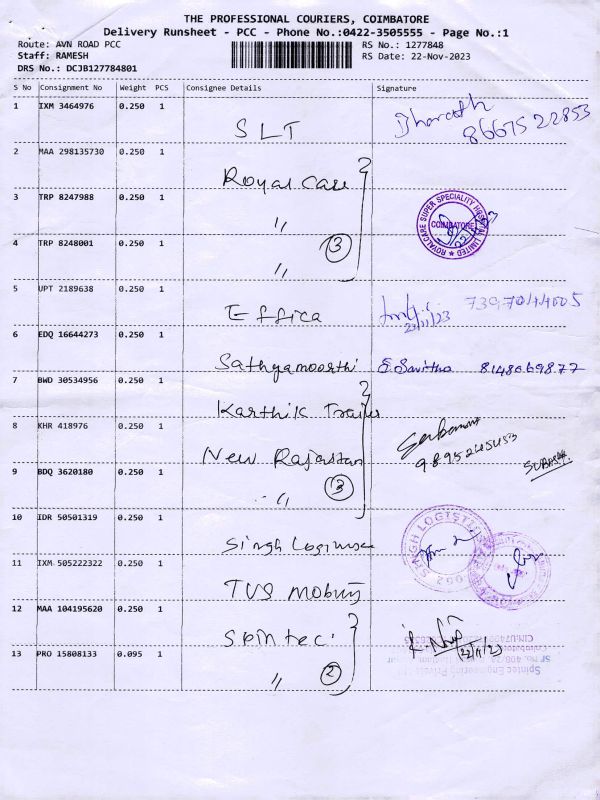 THE PROFESSIONAL COURIERS, COIMBATORE
Delivery Runsheet - PCC - Phone No.:0422-3505555 - Page No.:1
Route: AVN ROAD PCC RS No.: 1277848
Staff: RAMESH RS Date: 22-Nov-2023
DRS No.: DCJB127784801
S No Consignment No Weight PCS Consignee Details Signature
1 IXM 3464976 0.250 1 SLT Bharath 8667522853
2 MAA 298135730 0.250 1 Royal Care
3 TRP 8247988 0.250 1 " ROYALCARE SUPER SPECIALITY HOSPITAL LIMITED COIMBATORE
4 TRP 8248001 0.250 1 " 3
5 UPT 2189638 0.250 1 Effica 22/11/23 7397044005
6 EDQ 16644273 0.250 1 Sathyamoorthi S. Savitha 8148069877
7 BWD 30534956 0.250 1 Karthik
8 KHR 418976 0.250 1 New Rajastan 9895245453
9 BDQ 3620180 0.250 1 " 3
10 IDR 50501319 0.250 1 Singh SINGH LOGISTICS
11 IXM 505222322 0.250 1 TVS
12 MAA 104195620 0.250 1 Spintec 22/11/23
13 PRO 15808133 0.095 1 " 2
Spintec Engineering